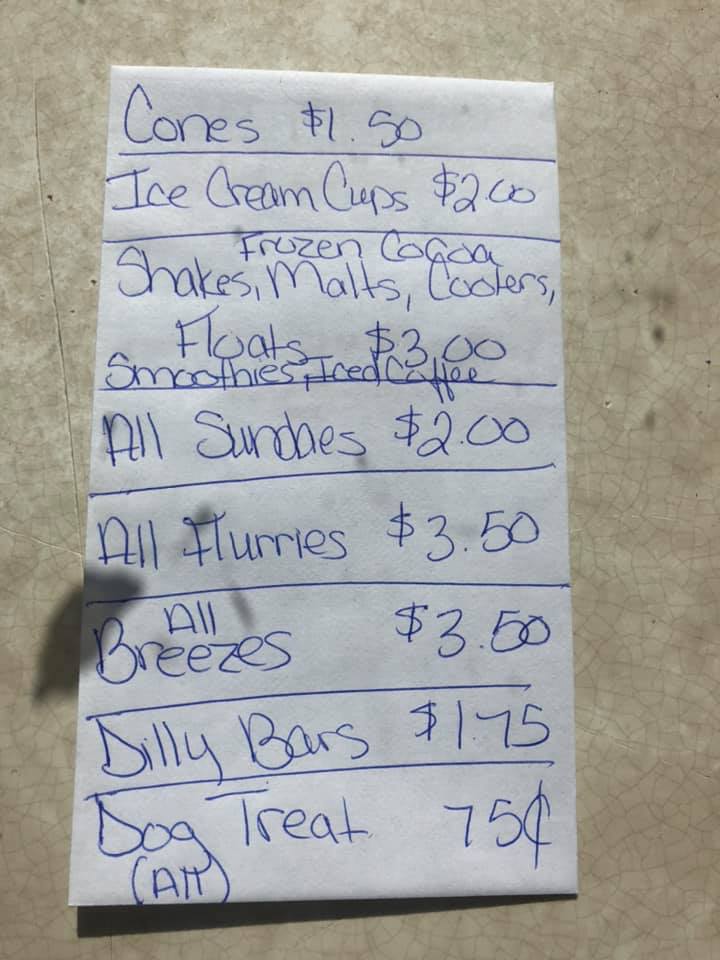 Cones $1.50
Ice Cream Cups $2.00
Frozen Cocoa
Shakes, Malts, Coolers,
Floats $3.00
Smoothies, Iced Coffee
All Sundaes $2.00
All Flurries $3.50
All
Breezes $3.50
Dilly Bars $1.75
Dog Treat 75¢
(All)